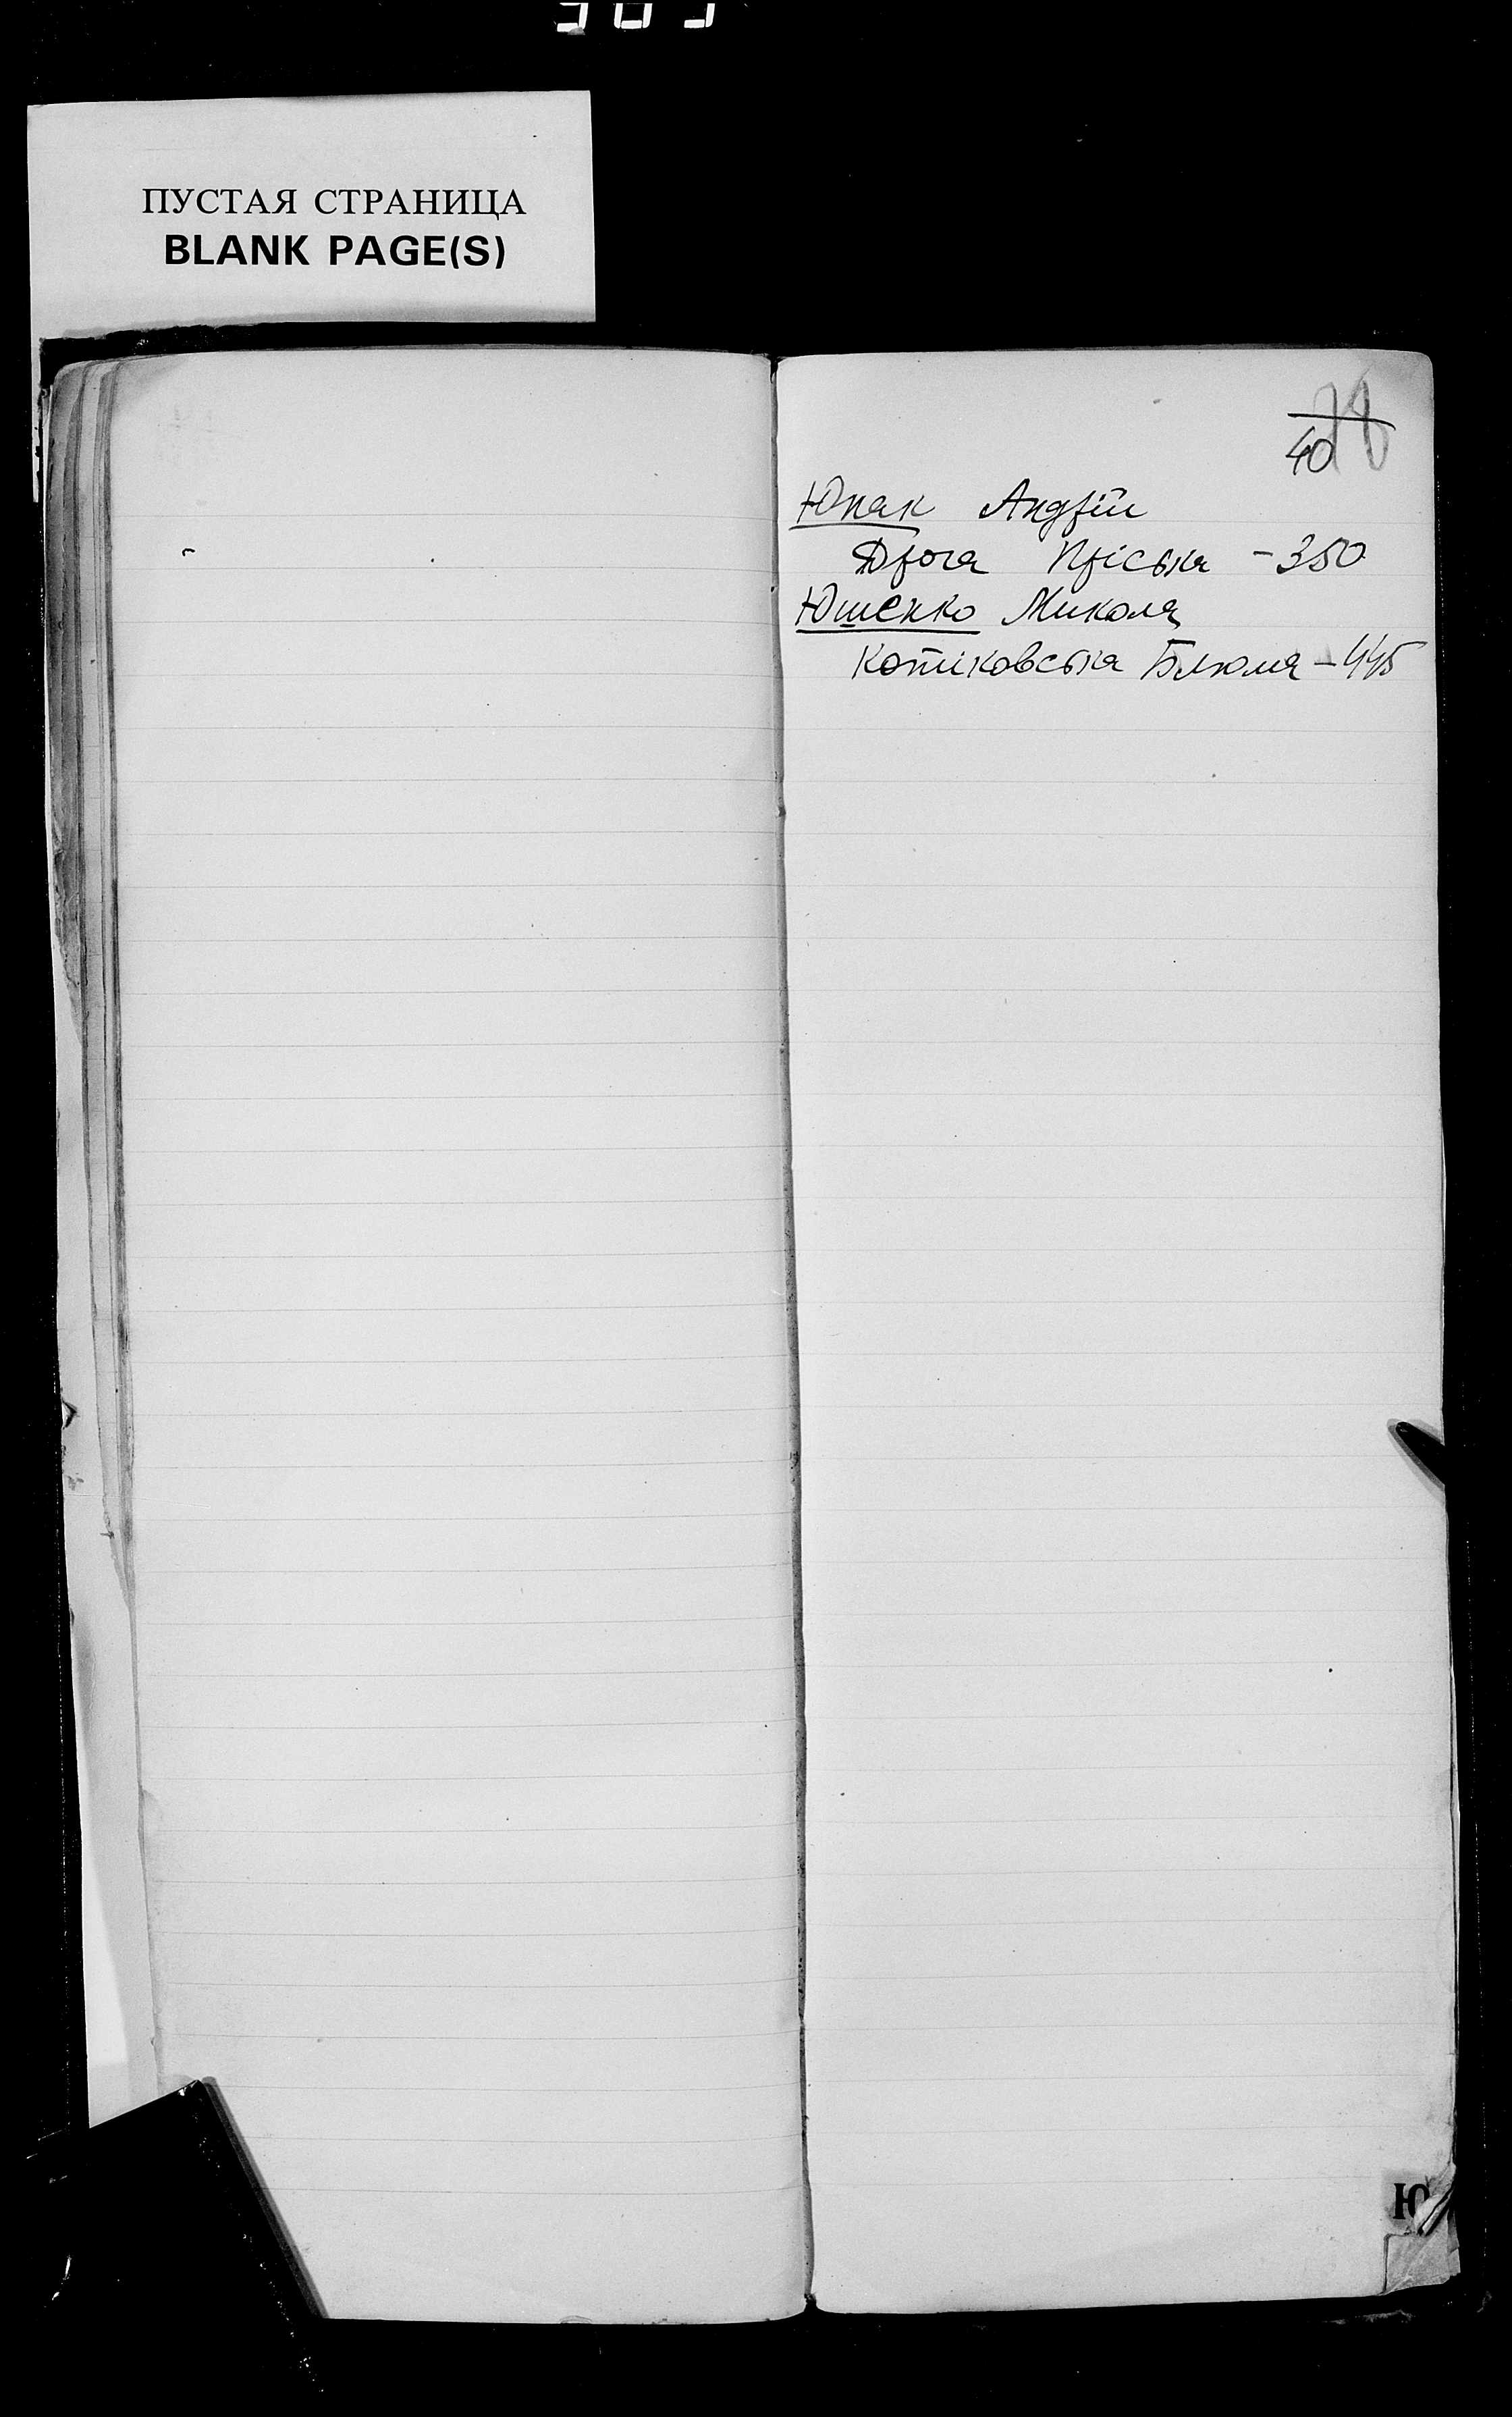 ПУСТАЯ СТРАНИЦА
BLANK PAGE(S)
40
Юпак Андрій
Пріська - 350
Юшенко Микола
Котіковська Блюма - 445
Ю